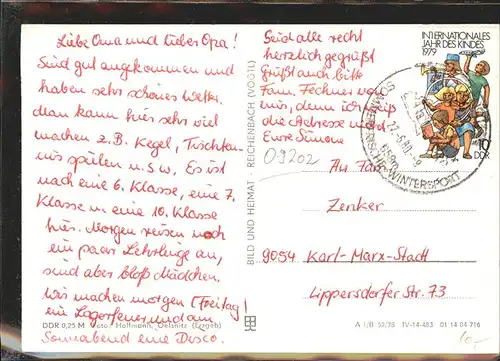 Liebe Oma und lieber Opa!
Sind gut angekommen und
haben sehr schönes Wetter.
Man kann hier sehr viel
machen z.B. Kegel, Tischten-
nis spielen u.s.w. Es ist
noch eine 6. Klasse, eine 7.
Klasse u. eine 10. Klasse
hier. Morgen reisen noch
ein paar Lehrlinge an,
sind aber bloß Mädchen.
Wir machen morgen (Freitag)
ein Lagerfeuer und am
Sonnabend eine Disco.
DDR 0,25 M Foto: Hoffmann, Oelsnitz (Erzgeb)
BILD UND HEIMAT · REICHENBACH (VOGTL)
Seid alle recht
herzlich gegrüßt
Grüßt auch bitte
Fam. Fechner von
mir, denn ich hab
die Adresse
Eure Simone
09202
INTERNATIONALES
JAHR DES KINDES
1979
10
DDR
WINTERSPORT
An Fam.
Zenker
9054 Karl-Marx-Stadt
Lippersdorfer Str. 73
A 1/B 52/78 IV-14-483 01 14 04 716
10,-